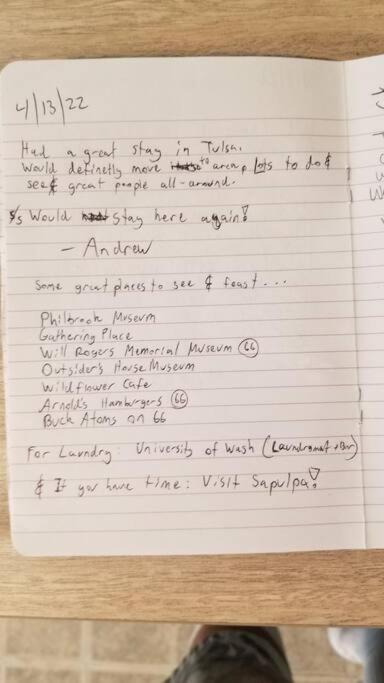 4/13/22
Had a great stay in Tulsa.
Would definetly move to area, Lots to do &
see & great people all-around.
5/5 Would stay here again!
- Andrew
Some great places to see & feast...
Philbrook Museum
Gathering Place
Will Rogers Memorial Museum 66
Outsider's House Museum
Wildflower Cafe
Arnold's Hamburgers 66
Buck Atoms on 66
For Laundry: University of Wash (Laundromat + Bar)
& If you have time: Visit Sapulpa!